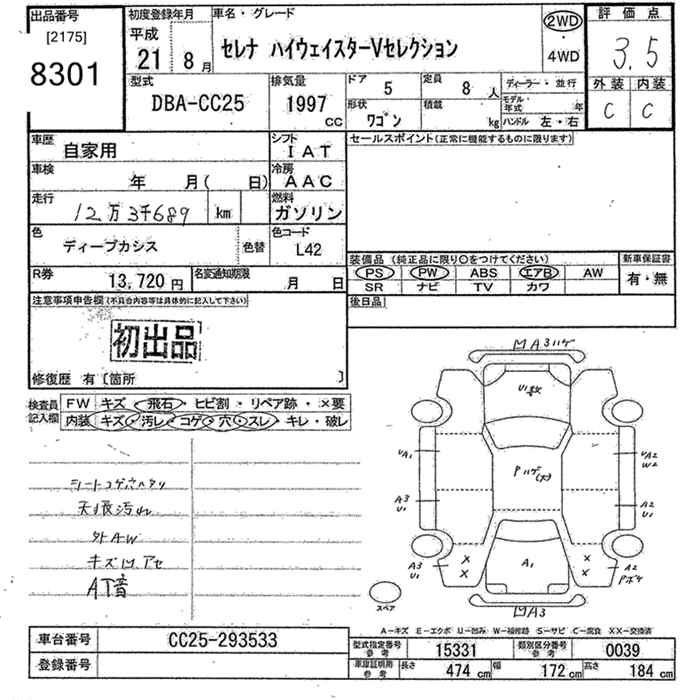 出品番号
[2175]
8301
初度登録年月
平成
21年
8月
車名・グレード
セレナ ハイウェイスターVセレクション
2WD
・
4WD
評価点
3.5
外装 内装
C C
型式
DBA-CC25
排気量
1997
cc
ドア
5
定員
8人
形状
ワゴン
積載
kg
ディーラー・並行
モデル年式 年
ハンドル 左・右
車歴
自家用
シフト
IAT
車検
年 月( 日)
冷房
AAC
走行
12万3千689 km
燃料
ガソリン
色
ディープカシス
色替
色コード
L42
R券
13,720円
名変通知期限
月 日
セールスポイント(正常に機能するものに限ります)
装備品(純正品に限り○をつけてください)
PS PW ABS エアB AW
SR ナビ TV カワ
新車保証書
有・無
後日品
注意事項申告欄(不具合内容等は具体的に記入して下さい)
初出品
修復歴 有〔箇所 〕
検査員記入欄
FW キズ・飛石・ヒビ割・リペア跡・×要
内装 キズ・汚レ・コゲ・穴・スレ・キレ・破レ
シートコゲ穴ヘタリ
天張汚れ
外AW
キズ凹アセ
AT音
凹A3ハゲ
U1多数
UA1
UA2
W2
Pハゲ(大)
A3
U1
A2
U1
A3
U1
× ×
× ×
A1
A2
Pボケ
スペア
凹A3
A-キズ E-エクボ U-凹み W-補修跡 S-サビ C-腐食 XX-交換済
車台番号
CC25-293533
登録番号
型式指定番号
参考
15331
類別区分番号
参考
0039
車庫証明用
参考
長さ
474 cm
幅
172 cm
高さ
184 cm